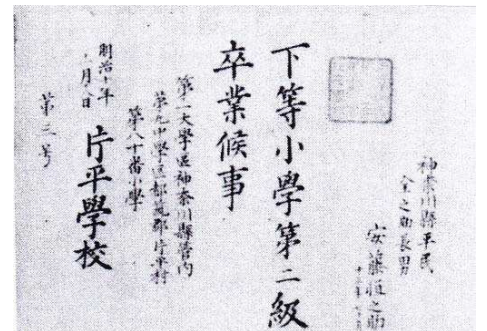 神奈川縣平民
長男
安藤恒之助
下等小學第二級
卒業候事
第一大學區神奈川縣管内
第九中學區都筑郡片平村
第八十番小學
片平學校
明治十年
月 日
第三号